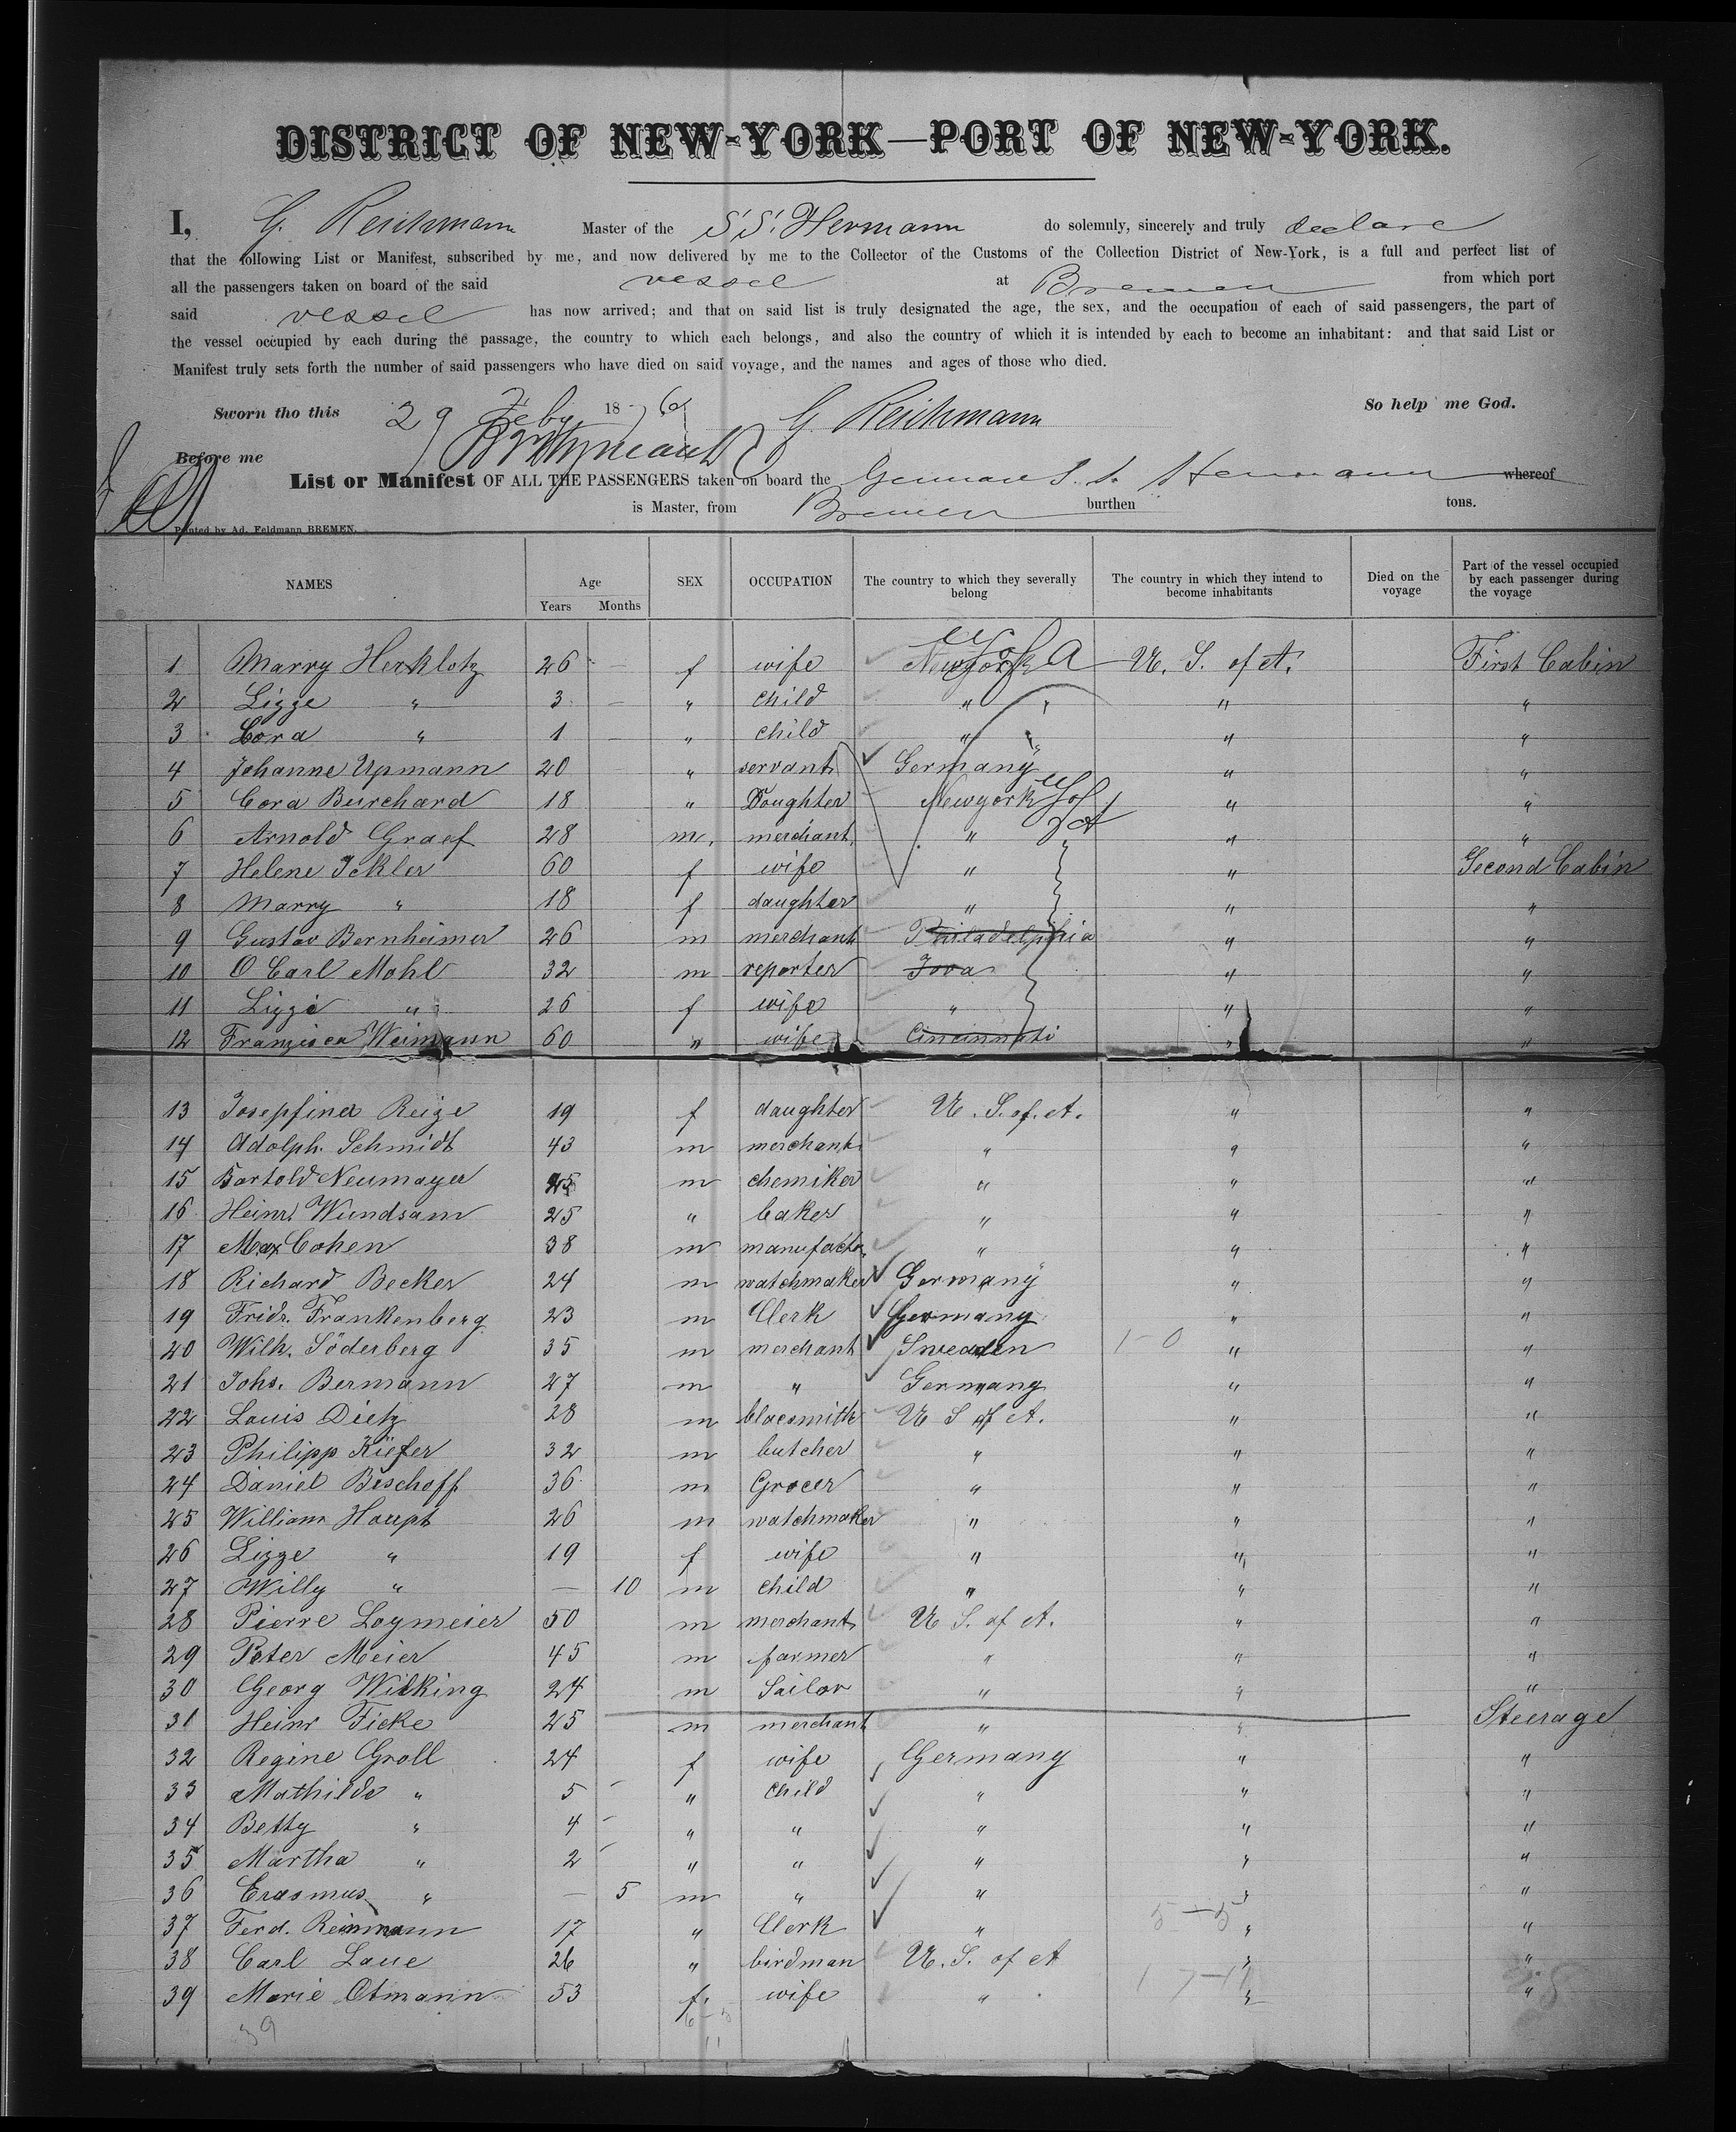 DISTRICT OF NEW-YORK—PORT OF NEW-YORK.
I, G. Reichmann Master of the S.S. Hermann do solemnly, sincerely and truly declare
that the following List or Manifest, subscribed by me, and now delivered by me to the Collector of the Customs of the Collection District of New-York, is a full and perfect list of
all the passengers taken on board of the said vessel at Bremen from which port
said vessel has now arrived; and that on said list is truly designated the age, the sex, and the occupation of each of said passengers, the part of
the vessel occupied by each during the passage, the country to which each belongs, and also the country of which it is intended by each to become an inhabitant: and that said List or
Manifest truly sets forth the number of said passengers who have died on said voyage, and the names and ages of those who died.
Sworn tho this 29 Feby 1876 G. Reichmann So help me God.
Before me
List or Manifest OF ALL THE PASSENGERS taken on board the German S. S. Hermann whereof
is Master, from Bremen burthen tons.
Printed by Ad. Feldmann BREMEN.
NAMES Age Years Months SEX OCCUPATION The country to which they severally belong The country in which they intend to become inhabitants Died on the voyage Part of the vessel occupied by each passenger during the voyage
1 Marry Herklotz 26 — f wife Newyork U S of A U. S. of A. First Cabin
2 Lizze " 3 — " child " " " "
3 Cora " 1 — " child " " " "
4 Johanne Upmann 20 " servant Germany " "
5 Cora Burchard 18 " Doughter Newyork U S of A " "
6 Arnold Graef 28 m. merchant " " "
7 Helene Ickler 60 f wife " " Second Cabin
8 Marry " 18 f daughter " " "
9 Gustav Bernheimer 26 m merchant Philadelphia " "
10 O Carl Mohl 32 m reporter Iova " "
11 Lizzi " 26 f wife " " "
12 Franzisca Weimann 60 " wife Cincinnati " "
13 Josepfina Reize 19 f daughter U. S. of. A. " "
14 Adolph. Schmidt 43 m merchant " " "
15 Bartold Neumayer 25 m chemiker " " "
16 Heinr. Wundsam 25 " baker " " "
17 Max Cohen 38 m manufactor. " " "
18 Richard Becker 24 m watchmaker Germany " "
19 Fridr. Frankenberg 23 m Clerk Germany " "
20 Wilh. Söderberg 35 m merchant Sweden 1-0 " "
21 Johs. Bermann 27 m " Germany " "
22 Louis Dietz 28 m blacsmith U S of A. " "
23 Philipp Kiefer 32 m butcher " " "
24 Daniel Bischoff 36 m Grocer " " "
25 William Haupt 26 m watchmaker " " "
26 Lizze " 19 f wife " " "
27 Willy " — 10 m child " " "
28 Pierre Loymeier 50 m merchant U S. of A. " "
29 Peter Meier 45 m farmer " " "
30 Georg Wilking 24 m Sailor " " "
31 Heinr Ficke 25 m merchant " " Steerage
32 Regine Groll 24 f wife Germany " "
33 Mathilde " 5 — " child " " "
34 Betty " 4 — " " " " "
35 Martha " 2 — " " " " "
36 Erasmus " — 5 m " " " "
37 Ferd. Reinmann 17 " Clerk " 5-5 " "
38 Carl Laue 26 " birdman U. S. of A " "
39 Marie Otmann 53 f. wife " " "
39
11